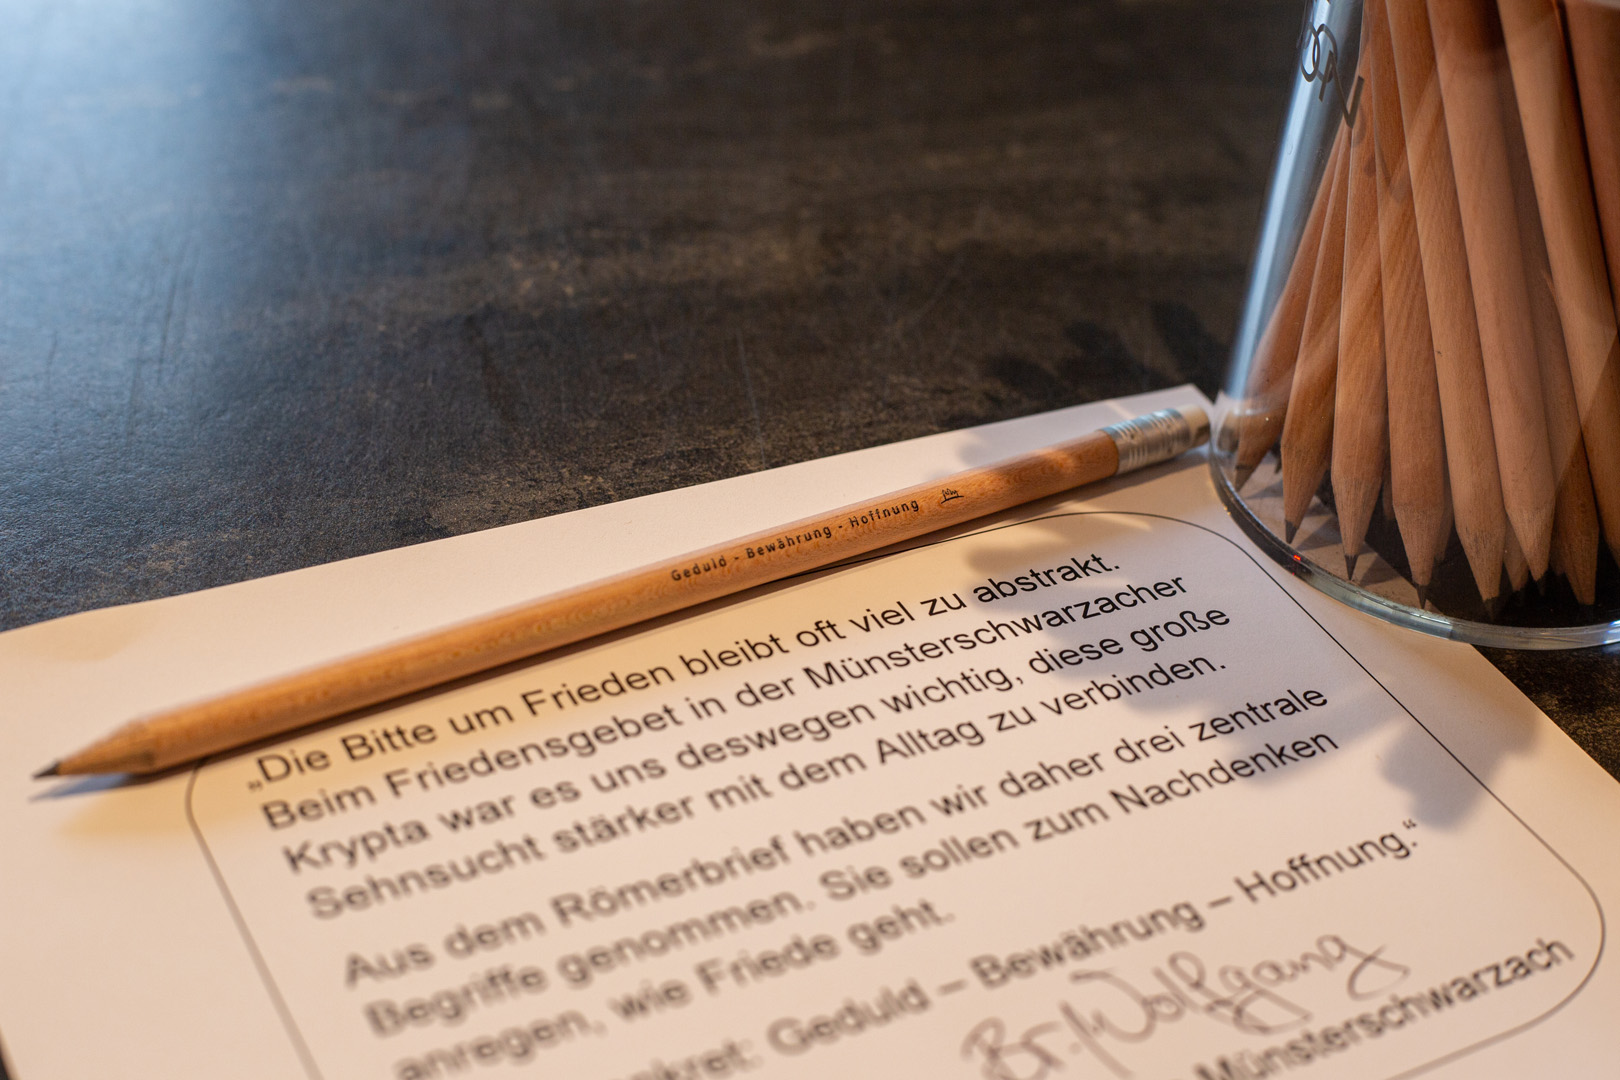 Geduld - Bewährung - Hoffnung
„Die Bitte um Frieden bleibt oft viel zu abstrakt.
Beim Friedensgebet in der Münsterschwarzacher
Krypta war es uns deswegen wichtig, diese große
Sehnsucht stärker mit dem Alltag zu verbinden.
Aus dem Römerbrief haben wir daher drei zentrale
Begriffe genommen. Sie sollen zum Nachdenken
anregen, wie Friede geht.
Geduld – Bewährung – Hoffnung.“
Br. Wolfgang
Münsterschwarzach